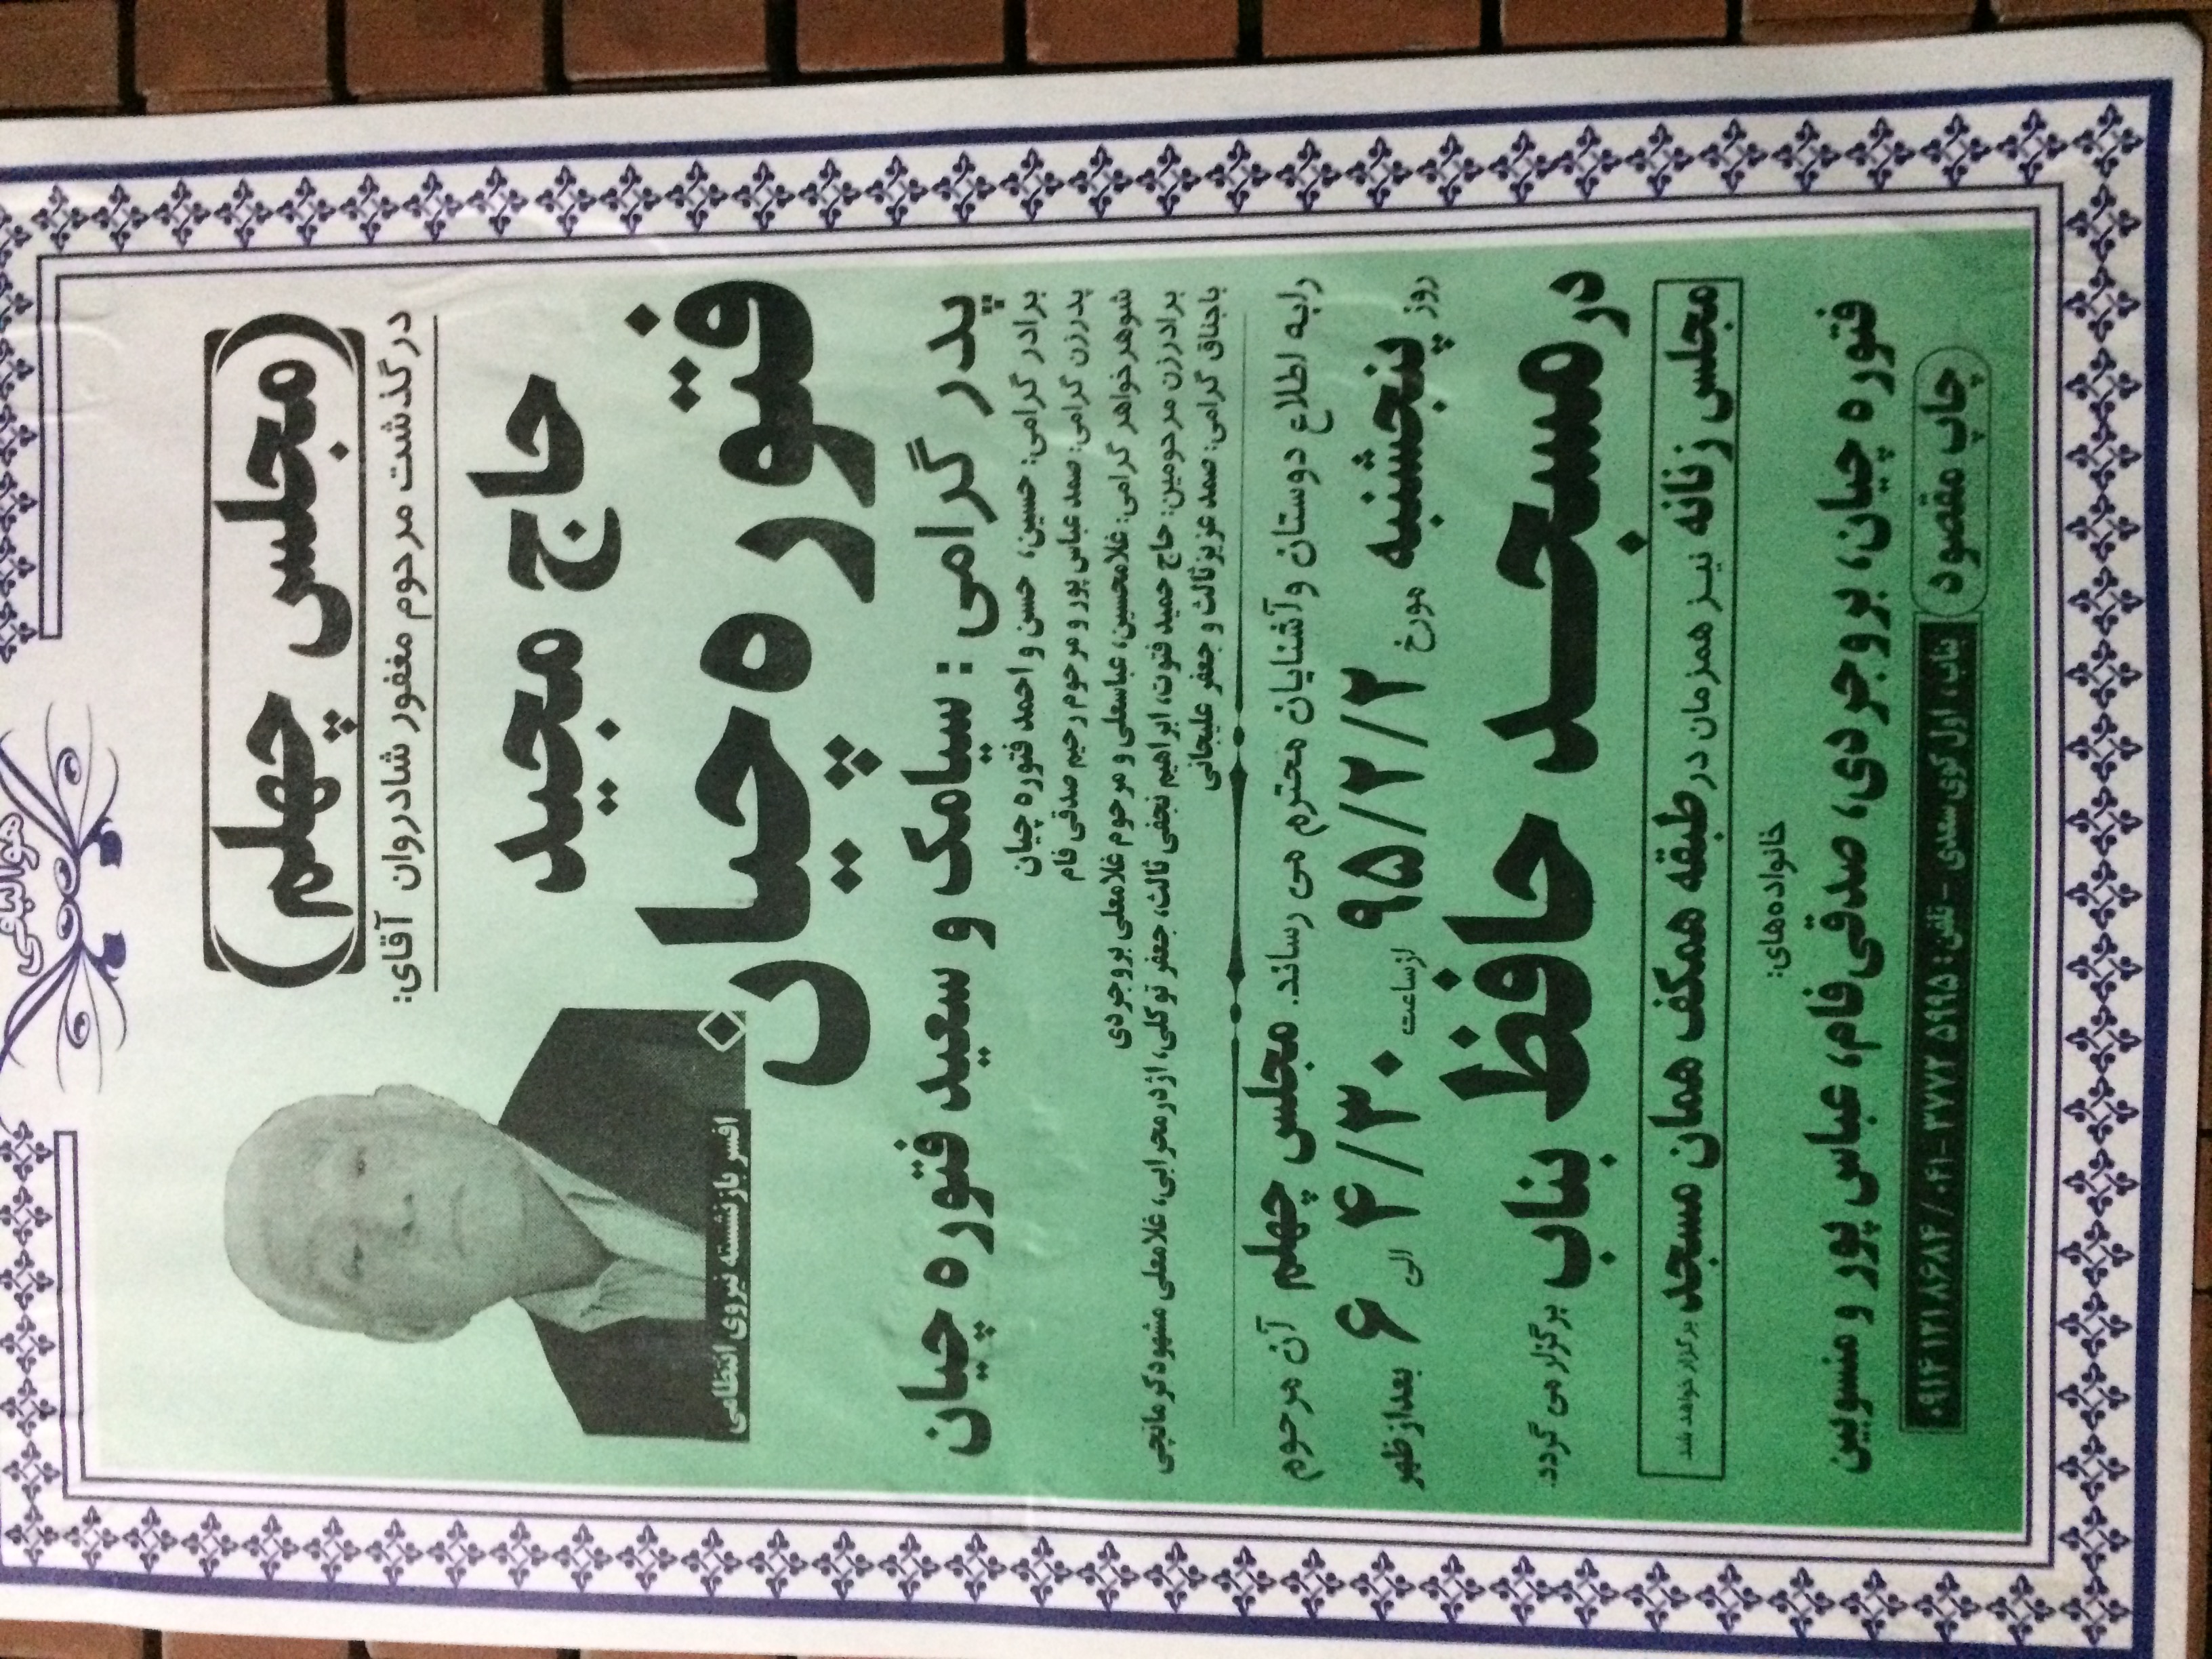 هوالباقی
مجلس چهلم
درگذشت مرحوم مغفور شادروان آقای:
حاج مجید
فتوره چیان
افسر بازنشسته نیروی انتظامی
پدر گرامی: سیامک و سعید فتوره چیان
برادر گرامی: حسین، حسن و احمد فتوره چیان
پدرزن گرامی: صمد عباس پور و مرحوم رحیم صدقی فام
شوهر خواهر گرامی: غلامحسین، عباسعلی و مرحوم غلامعلی بروجردی
برادرزن مرحومین: حاج حمید فتوت، ابراهیم نجفی ثالث، جعفر توکلی، اژدر محرابی، غلامعلی مشهود کرمانجی
باجناق گرامی: صمد عزیز ثالث و جعفر علیجانی
رابه اطلاع دوستان و آشنایان محترم می رساند. مجلس چهلم آن مرحوم
روز پنجشنبه مورخ ۹۵/۲/۲ از ساعت ۴/۳۰ الی ۶ بعدازظهر
در مسجد حافظ بناب برگزار می گردد.
مجلس زنانه نیز همزمان در طبقه همکف همان مسجد برگزار خواهد شد
خانواده های:
فتوره چیان، بروجردی، صدقی فام، عباس پور و منسوبین
چاپ مقصود بناب، اول کوی سعدی - تلفن: ۵۹۹۵ ۳۷۷۲-۰۴۱ / ۰۹۱۴ ۱۲۱ ۸۶۸۴